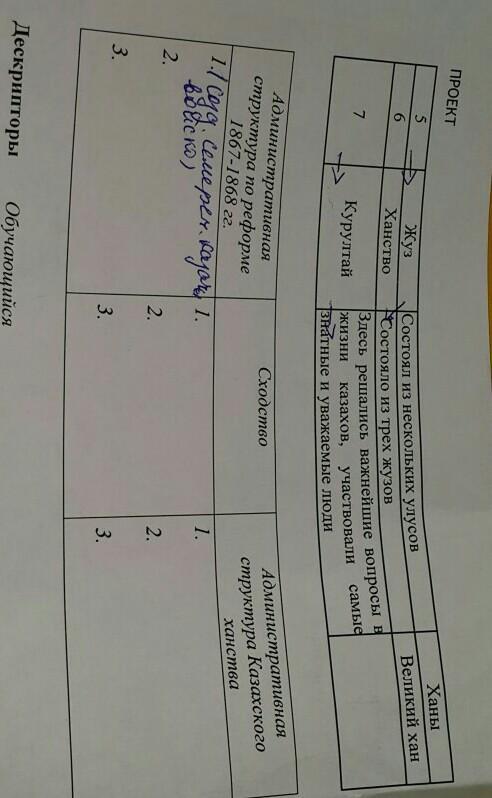 ПРОЕКТ
Ханы
5 Жуз Состоял из нескольких улусов Великий хан
6 Ханство Состояло из трех жузов
7 Курултай Здесь решались важнейшие вопросы в
жизни казахов, участвовали самые
знатные и уважаемые люди
Административная
структура по реформе
1867-1868 гг.
Сходство
Административная
структура Казахского
ханства
1. созд. семиреч. казач.
войско,
2.
3.
1.
2.
3.
1.
2.
3.
Дескрипторы Обучающийся